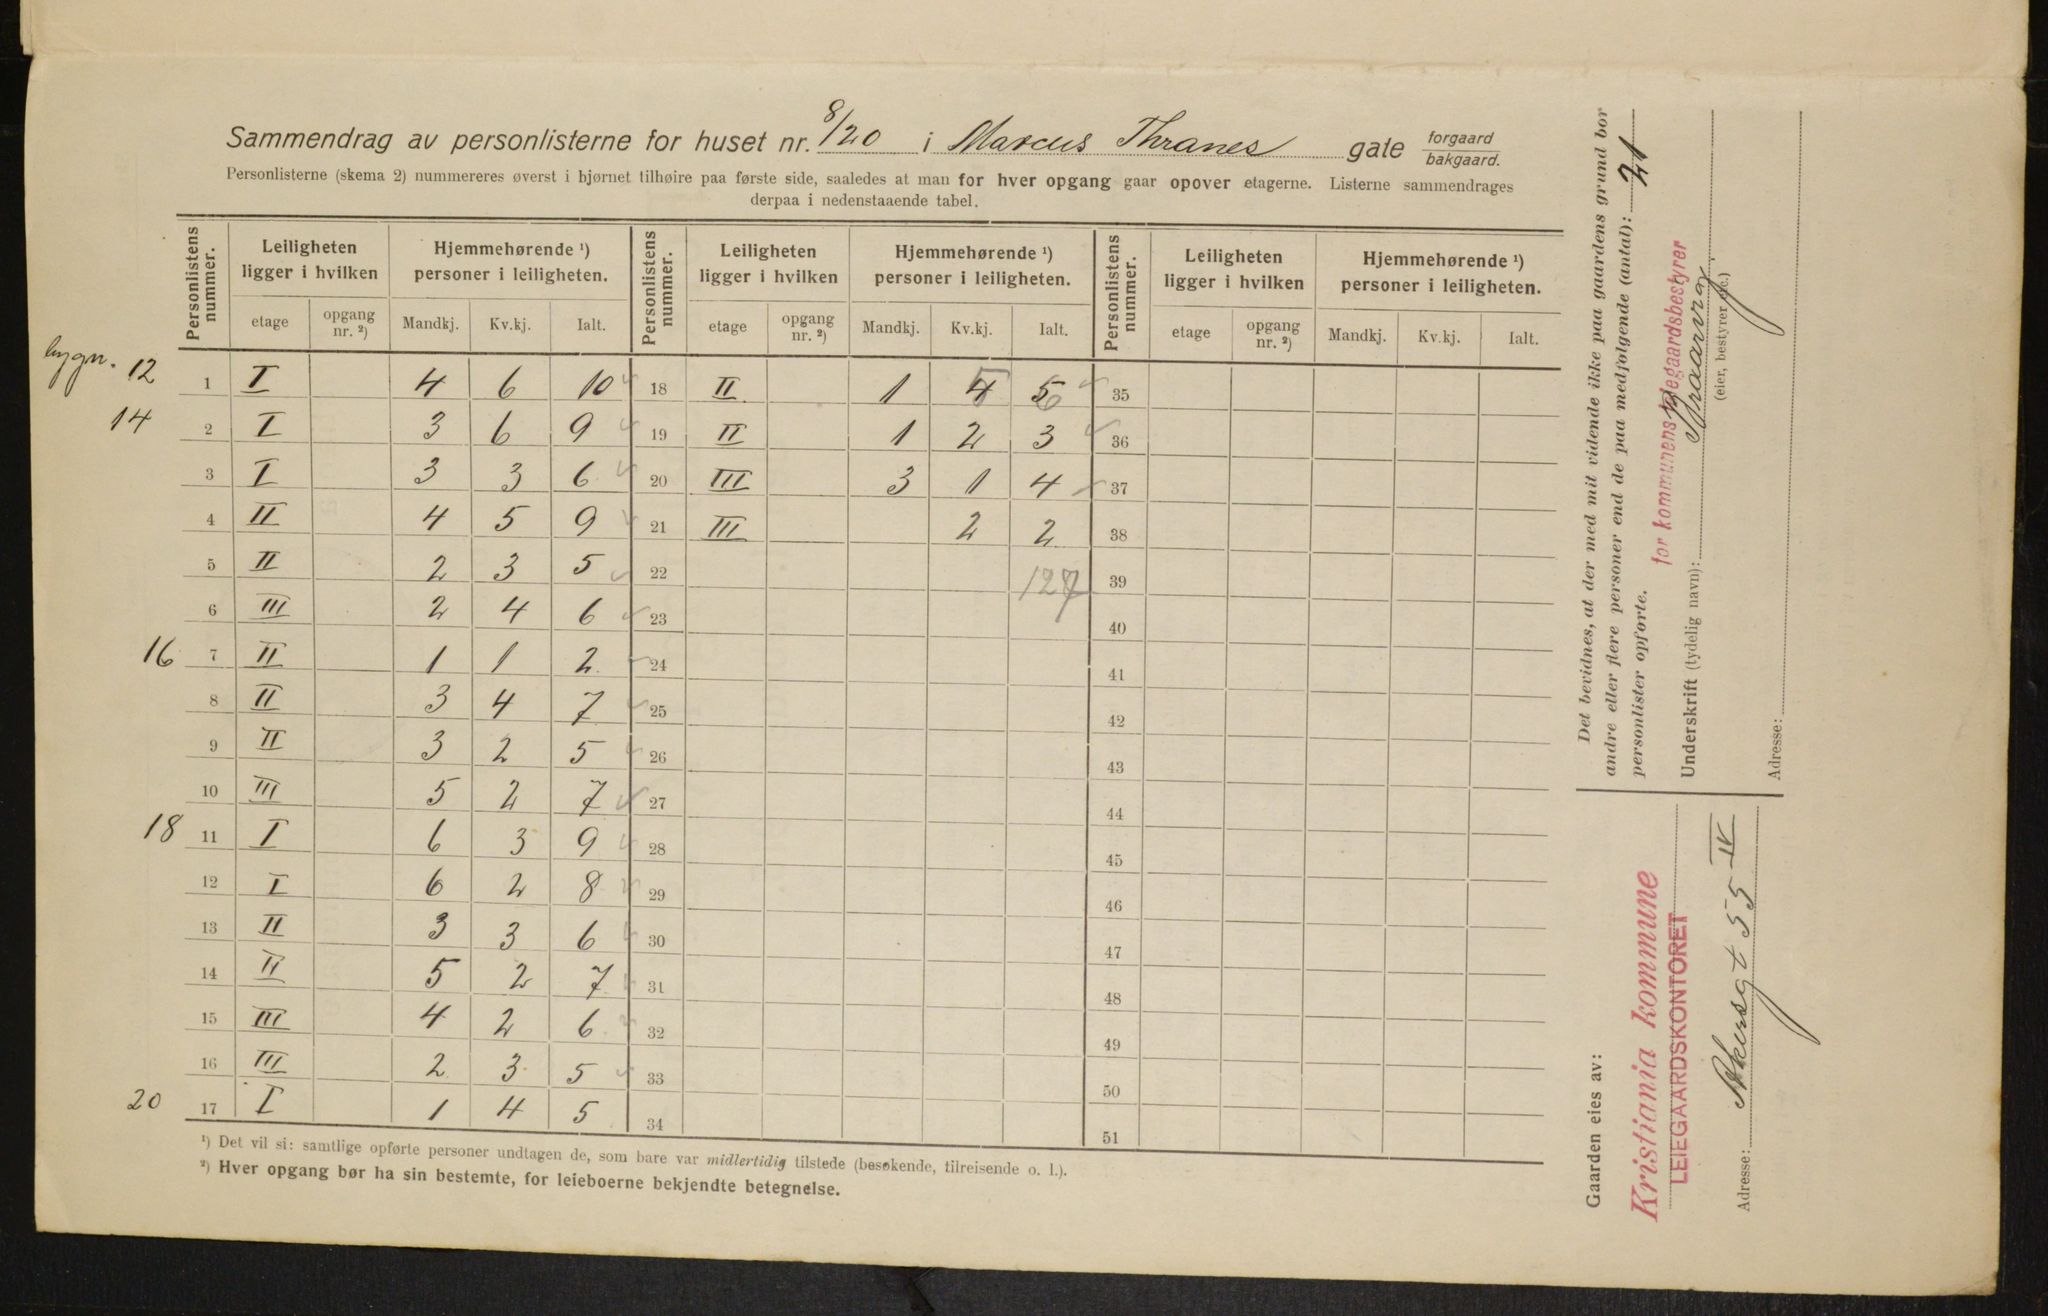 Sammendrag av personlisterne for huset nr. 8/20 i Marcus Thranes gate forgaard bakgaard.
Personlisterne (skema 2) nummereres øverst i hjørnet tilhøire paa første side, saaledes at man for hver opgang gaar opover etagerne. Listerne sammendrages
derpaa i nedenstaaende tabel.
Personlistens nummer. Leiligheten ligger i hvilken Hjemmehørende ¹) personer i leiligheten. Personlistens nummer. Leiligheten ligger i hvilken Hjemmehørende ¹) personer i leiligheten. Personlistens nummer. Leiligheten ligger i hvilken Hjemmehørende ¹) personer i leiligheten.
etage opgang nr. ²) Mandkj. Kv.kj. Ialt. etage opgang nr. ²) Mandkj. Kv.kj. Ialt. etage opgang nr. ²) Mandkj. Kv.kj. Ialt.
bygn. 12 1 I 4 6 10 18 II 1 4 5 5 6 35
14 2 I 3 6 9 19 II 1 2 3 36
3 I 3 3 6 20 III 3 1 4 37
4 II 4 5 9 21 III 2 2 38
5 II 2 3 5 22 127 39
6 III 2 4 6 23 40
16 7 II 1 1 2 24 41
8 II 3 4 7 25 42
9 II 3 2 5 26 43
10 III 5 2 7 27 44
18 11 I 6 3 9 28 45
12 I 6 2 8 29 46
13 II 3 3 6 30 47
14 II 5 2 7 31 48
15 III 4 2 6 32 49
16 III 2 3 5 33 50
20 17 I 1 4 5 34 51
¹) Det vil si: samtlige opførte personer undtagen de, som bare var midlertidig tilstede (besøkende, tilreisende o. l.).
²) Hver opgang bør ha sin bestemte, for leieboerne bekjendte betegnelse.
Det bevidnes, at der med mit vidende ikke paa gaardens grund bor
andre eller flere personer end de paa medfølgende (antal): 21
personlister opførte.
for kommunens leiegaardsbestyrer
Underskrift (tydelig navn):
(eier, bestyrer etc.)
Adresse:
Gaarden eies av:
Kristiania kommune
LEIEGAARDSKONTORET
Adresse: Akersgt 55 IV